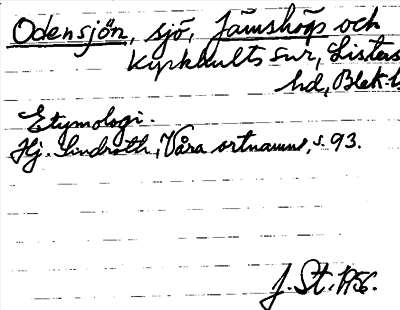 Odensjön, sjö, Jämshögs och
Kyrkhults snr, Listers
hd, Blek.l.
Etymologi.
Hj. Lindroth, Våra ortnamn, s. 93.
J. St. 1956.